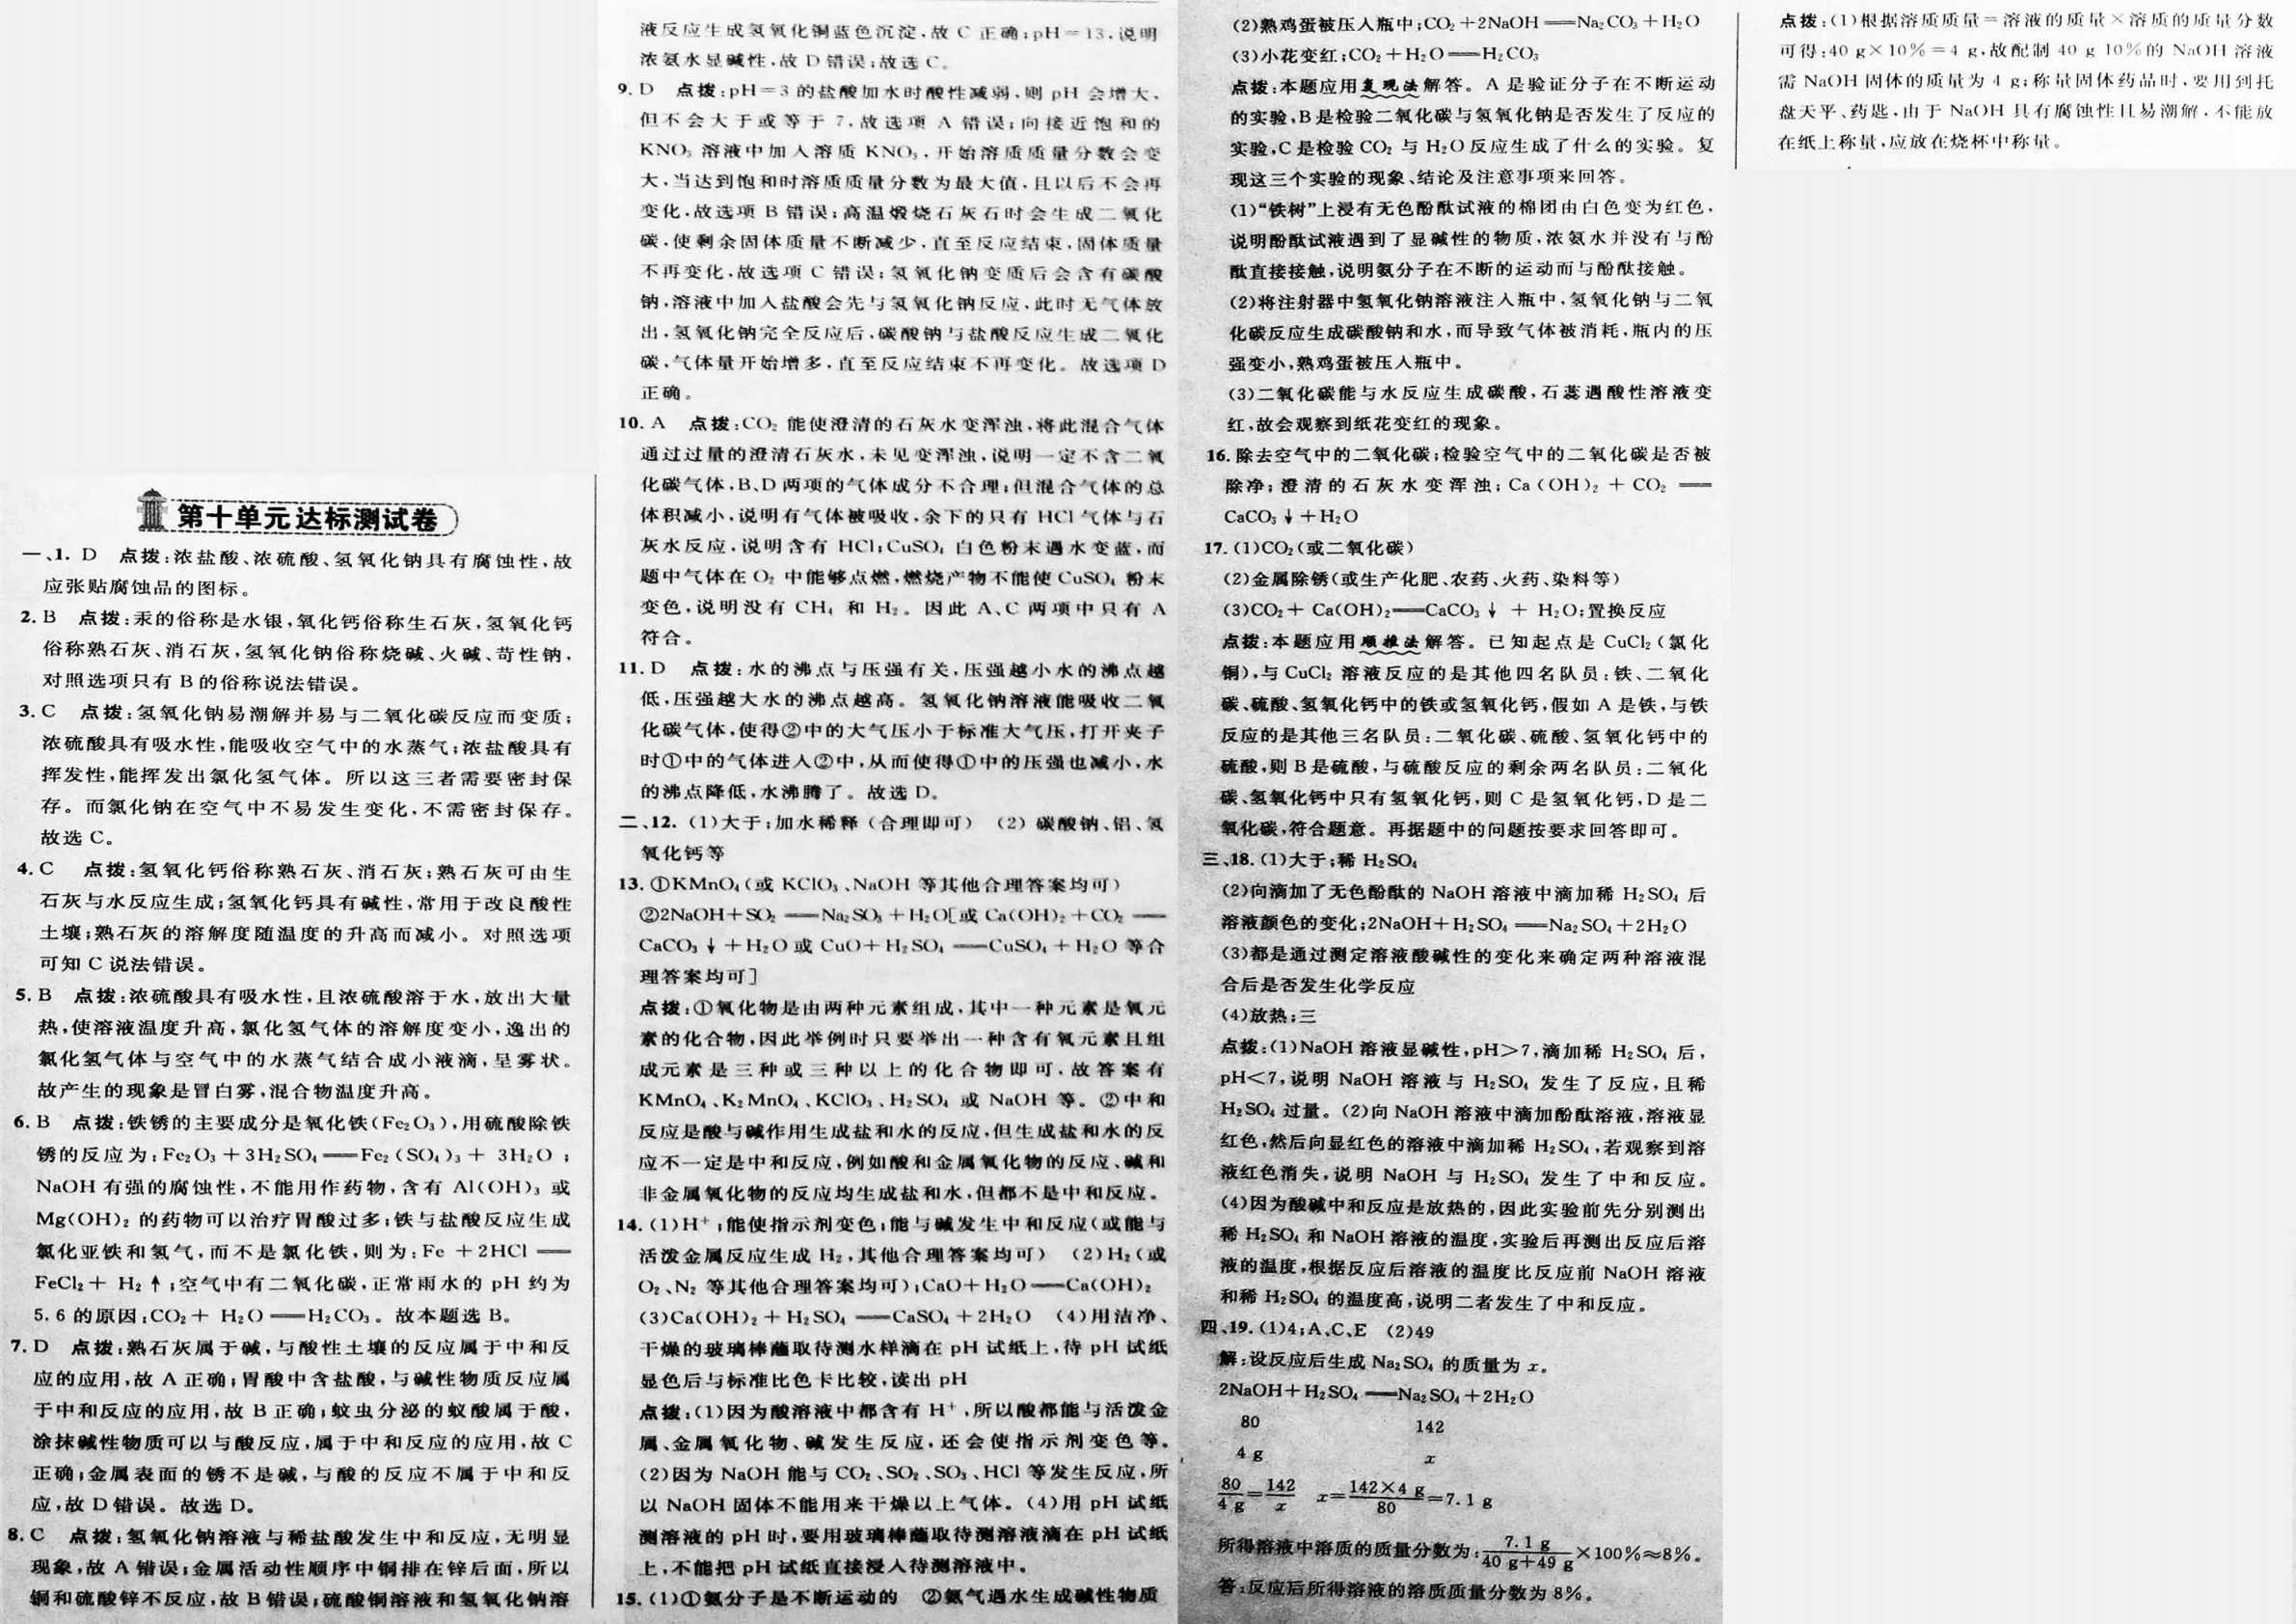 第十单元达标测试卷
一、1. D 点拨:浓盐酸、浓硫酸、氢氧化钠具有腐蚀性,故
应张贴腐蚀品的图标。
2. B 点拨:汞的俗称是水银,氧化钙俗称生石灰,氢氧化钙
俗称熟石灰、消石灰,氢氧化钠俗称烧碱、火碱、苛性钠,
对照选项只有 B 的俗称说法错误。
3. C 点拨:氢氧化钠易潮解并易与二氧化碳反应而变质;
浓硫酸具有吸水性,能吸收空气中的水蒸气;浓盐酸具有
挥发性,能挥发出氯化氢气体。所以这三者需要密封保
存。而氯化钠在空气中不易发生变化,不需密封保存。
故选 C。
4. C 点拨:氢氧化钙俗称熟石灰、消石灰;熟石灰可由生
石灰与水反应生成;氢氧化钙具有碱性,常用于改良酸性
土壤;熟石灰的溶解度随温度的升高而减小。对照选项
可知 C 说法错误。
5. B 点拨:浓硫酸具有吸水性,且浓硫酸溶于水,放出大量
热,使溶液温度升高,氯化氢气体的溶解度变小,逸出的
氯化氢气体与空气中的水蒸气结合成小液滴,呈雾状。
故产生的现象是冒白雾,混合物温度升高。
6. B 点拨:铁锈的主要成分是氧化铁(Fe₂O₃),用硫酸除铁
锈的反应为:Fe₂O₃+3H₂SO₄══Fe₂(SO₄)₃+ 3H₂O ;
NaOH 有强的腐蚀性,不能用作药物,含有 Al(OH)₃ 或
Mg(OH)₂ 的药物可以治疗胃酸过多;铁与盐酸反应生成
氯化亚铁和氢气,而不是氯化铁,则为:Fe +2HCl ══
FeCl₂+ H₂↑;空气中有二氧化碳,正常雨水的 pH 约为
5.6 的原因:CO₂+ H₂O ══H₂CO₃。故本题选 B。
7. D 点拨:熟石灰属于碱,与酸性土壤的反应属于中和反
应的应用,故 A 正确;胃酸中含盐酸,与碱性物质反应属
于中和反应的应用,故 B 正确;蚊虫分泌的蚁酸属于酸,
涂抹碱性物质可以与酸反应,属于中和反应的应用,故 C
正确;金属表面的锈不是碱,与酸的反应不属于中和反
应,故 D 错误。故选 D。
8. C 点拨:氢氧化钠溶液与稀盐酸发生中和反应,无明显
现象,故 A 错误;金属活动性顺序中铜排在锌后面,所以
铜和硫酸锌不反应,故 B 错误;硫酸铜溶液和氢氧化钠溶
液反应生成氢氧化铜蓝色沉淀,故 C 正确;pH=13,说明
浓氨水显碱性,故 D 错误;故选 C。
9. D 点拨:pH=3 的盐酸加水时酸性减弱,则 pH 会增大,
但不会大于或等于 7,故选项 A 错误;向接近饱和的
KNO₃ 溶液中加入溶质 KNO₃,开始溶质质量分数会变
大,当达到饱和时溶质质量分数为最大值,且以后不会再
变化,故选项 B 错误;高温煅烧石灰石时会生成二氧化
碳,使剩余固体质量不断减少,直至反应结束,固体质量
不再变化,故选项 C 错误;氢氧化钠变质后会含有碳酸
钠,溶液中加入盐酸会先与氢氧化钠反应,此时无气体放
出,氢氧化钠完全反应后,碳酸钠与盐酸反应生成二氧化
碳,气体量开始增多,直至反应结束不再变化。故选项 D
正确。
10. A 点拨:CO₂ 能使澄清的石灰水变浑浊,将此混合气体
通过过量的澄清石灰水,未见变浑浊,说明一定不含二氧
化碳气体,B、D 两项的气体成分不合理;但混合气体的总
体积减小,说明有气体被吸收,余下的只有 HCl 气体与石
灰水反应,说明含有 HCl;CuSO₄ 白色粉末遇水变蓝,而
题中气体在 O₂ 中能够点燃,燃烧产物不能使 CuSO₄ 粉末
变色,说明没有 CH₄ 和 H₂。因此 A、C 两项中只有 A
符合。
11. D 点拨:水的沸点与压强有关,压强越小水的沸点越
低,压强越大水的沸点越高。氢氧化钠溶液能吸收二氧
化碳气体,使得②中的大气压小于标准大气压,打开夹子
时①中的气体进入②中,从而使得①中的压强也减小,水
的沸点降低,水沸腾了。故选 D。
二、12. (1)大于;加水稀释(合理即可) (2) 碳酸钠、铝、氢
氧化钙等
13. ①KMnO₄(或 KClO₃、NaOH 等其他合理答案均可)
②2NaOH+SO₂ ══Na₂SO₃+H₂O[或 Ca(OH)₂+CO₂ ══
CaCO₃↓+H₂O 或 CuO+H₂SO₄ ══CuSO₄+H₂O 等合
理答案均可]
点拨:①氧化物是由两种元素组成,其中一种元素是氧元
素的化合物,因此举例时只要举出一种含有氧元素且组
成元素是三种或三种以上的化合物即可,故答案有
KMnO₄、K₂MnO₄、KClO₃、H₂SO₄ 或 NaOH 等。②中和
反应是酸与碱作用生成盐和水的反应,但生成盐和水的反
应不一定是中和反应,例如酸和金属氧化物的反应、碱和
非金属氧化物的反应均生成盐和水,但都不是中和反应。
14. (1)H⁺;能使指示剂变色;能与碱发生中和反应(或能与
活泼金属反应生成 H₂,其他合理答案均可) (2)H₂(或
O₂、N₂ 等其他合理答案均可);CaO+H₂O══Ca(OH)₂
(3)Ca(OH)₂+H₂SO₄ ══CaSO₄+2H₂O (4)用洁净、
干燥的玻璃棒蘸取待测水样滴在 pH 试纸上,待 pH 试纸
显色后与标准比色卡比较,读出 pH
点拨:(1)因为酸溶液中都含有 H⁺,所以酸都能与活泼金
属、金属氧化物、碱发生反应,还会使指示剂变色等。
(2)因为 NaOH 能与 CO₂、SO₂、SO₃、HCl 等发生反应,所
以 NaOH 固体不能用来干燥以上气体。(4)用 pH 试纸
测溶液的 pH 时,要用玻璃棒蘸取待测溶液滴在 pH 试纸
上,不能把 pH 试纸直接浸入待测溶液中。
15. (1)①氨分子是不断运动的 ②氨气遇水生成碱性物质
(2)熟鸡蛋被压入瓶中;CO₂+2NaOH══Na₂CO₃+H₂O
(3)小花变红;CO₂+H₂O══H₂CO₃
点拨:本题应用复现法解答。A 是验证分子在不断运动
的实验,B是检验二氧化碳与氢氧化钠是否发生了反应的
实验,C是检验 CO₂ 与 H₂O反应生成了什么的实验。复
现这三个实验的现象、结论及注意事项来回答。
(1)“铁树”上浸有无色酚酞试液的棉团由白色变为红色,
说明酚酞试液遇到了显碱性的物质,浓氨水并没有与酚
酞直接接触,说明氨分子在不断的运动而与酚酞接触。
(2)将注射器中氢氧化钠溶液注入瓶中,氢氧化钠与二氧
化碳反应生成碳酸钠和水,而导致气体被消耗,瓶内的压
强变小,熟鸡蛋被压入瓶中。
(3)二氧化碳能与水反应生成碳酸,石蕊遇酸性溶液变
红,故会观察到纸花变红的现象。
16. 除去空气中的二氧化碳;检验空气中的二氧化碳是否被
除净;澄清的石灰水变浑浊;Ca(OH)₂ + CO₂ ══
CaCO₃↓+H₂O
17. (1)CO₂(或二氧化碳)
(2)金属除锈(或生产化肥、农药、火药、染料等)
(3)CO₂+ Ca(OH)₂══CaCO₃↓ + H₂O;置换反应
点拨:本题应用顺推法解答。已知起点是 CuCl₂(氯化
铜),与 CuCl₂ 溶液反应的是其他四名队员:铁、二氧化
碳、硫酸、氢氧化钙中的铁或氢氧化钙,假如 A 是铁,与铁
反应的是其他三名队员:二氧化碳、硫酸、氢氧化钙中的
硫酸,则 B是硫酸,与硫酸反应的剩余两名队员:二氧化
碳、氢氧化钙中只有氢氧化钙,则 C 是氢氧化钙,D 是二
氧化碳,符合题意。再据题中的问题按要求回答即可。
三、18. (1)大于;稀 H₂SO₄
(2)向滴加了无色酚酞的 NaOH 溶液中滴加稀 H₂SO₄ 后
溶液颜色的变化;2NaOH+H₂SO₄ ══Na₂SO₄+2H₂O
(3)都是通过测定溶液酸碱性的变化来确定两种溶液混
合后是否发生化学反应
(4)放热;三
点拨:(1)NaOH 溶液显碱性,pH>7,滴加稀 H₂SO₄ 后,
pH<7,说明 NaOH 溶液与 H₂SO₄ 发生了反应,且稀
H₂SO₄ 过量。(2)向 NaOH 溶液中滴加酚酞溶液,溶液显
红色,然后向显红色的溶液中滴加稀 H₂SO₄,若观察到溶
液红色消失,说明 NaOH 与 H₂SO₄ 发生了中和反应。
(4)因为酸碱中和反应是放热的,因此实验前先分别测出
稀 H₂SO₄ 和 NaOH 溶液的温度,实验后再测出反应后溶
液的温度,根据反应后溶液的温度比反应前 NaOH 溶液
和稀 H₂SO₄ 的温度高,说明二者发生了中和反应。
四、19. (1)4;A、C、E (2)49
解:设反应后生成 Na₂SO₄ 的质量为 x。
2NaOH+H₂SO₄ ══Na₂SO₄+2H₂O
80 142
4 g x
80/4 g=142/x x=142×4 g/80=7.1 g
所得溶液中溶质的质量分数为:7.1 g/40 g+49 g×100%≈8%。
答:反应后所得溶液的溶质质量分数为 8%。
点拨:(1)根据溶质质量=溶液的质量×溶质的质量分数
可得:40 g×10%=4 g,故配制 40 g 10%的 NaOH 溶液
需 NaOH 固体的质量为 4 g;称量固体药品时,要用到托
盘天平、药匙,由于 NaOH 具有腐蚀性且易潮解,不能放
在纸上称量,应放在烧杯中称量。